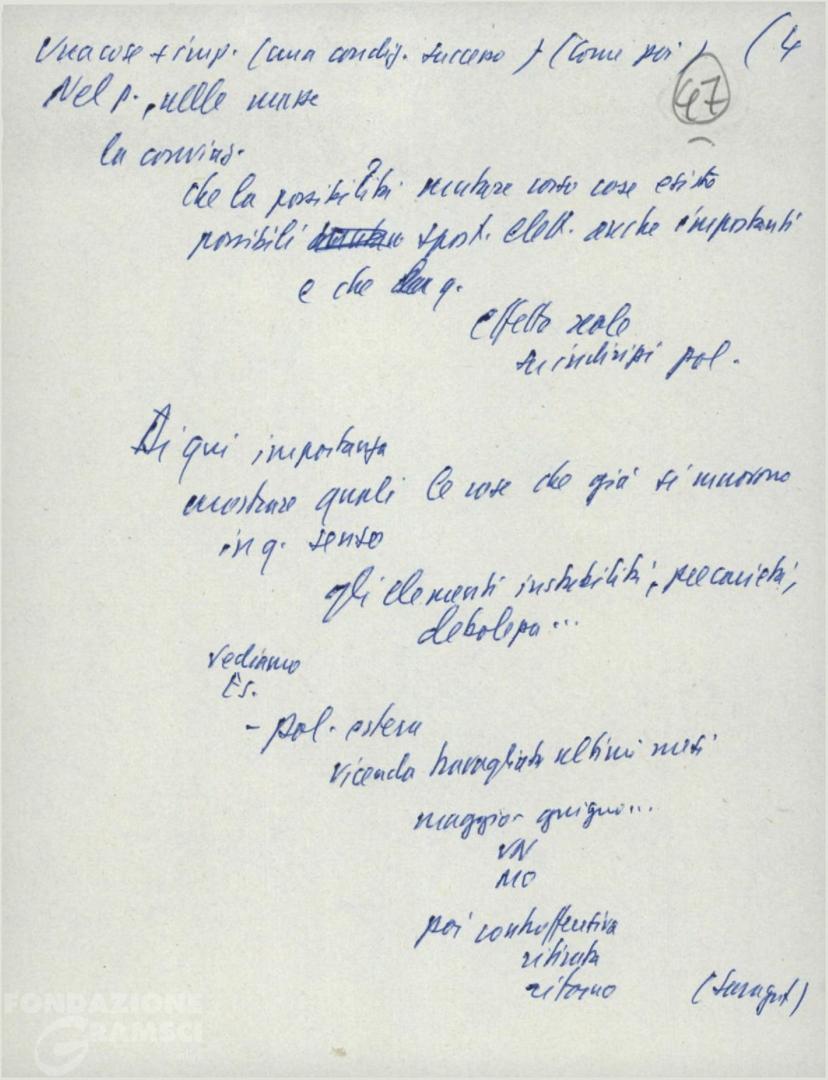 Una cosa + imp. (una condiz. successo) (come poi) (4
Nel p., nelle masse 47
la convinz.
che la possibilità mutare corso cose esiste
possibili spost. elett. anche importanti
e che q.
effetto reale
su indirizzi pol.
Di qui importanza
mostrare quali le cose che già si muovono
in q. senso
gli elementi instabilità, precarietà,
debolezza...
vediamo
Es.
- pol. estera
vicenda travagliata ultimi mesi
maggio - giugno...
VN
MO
poi controffensiva
ritirata
ritorno (Saragat)
FONDAZIONE
GRAMSCI